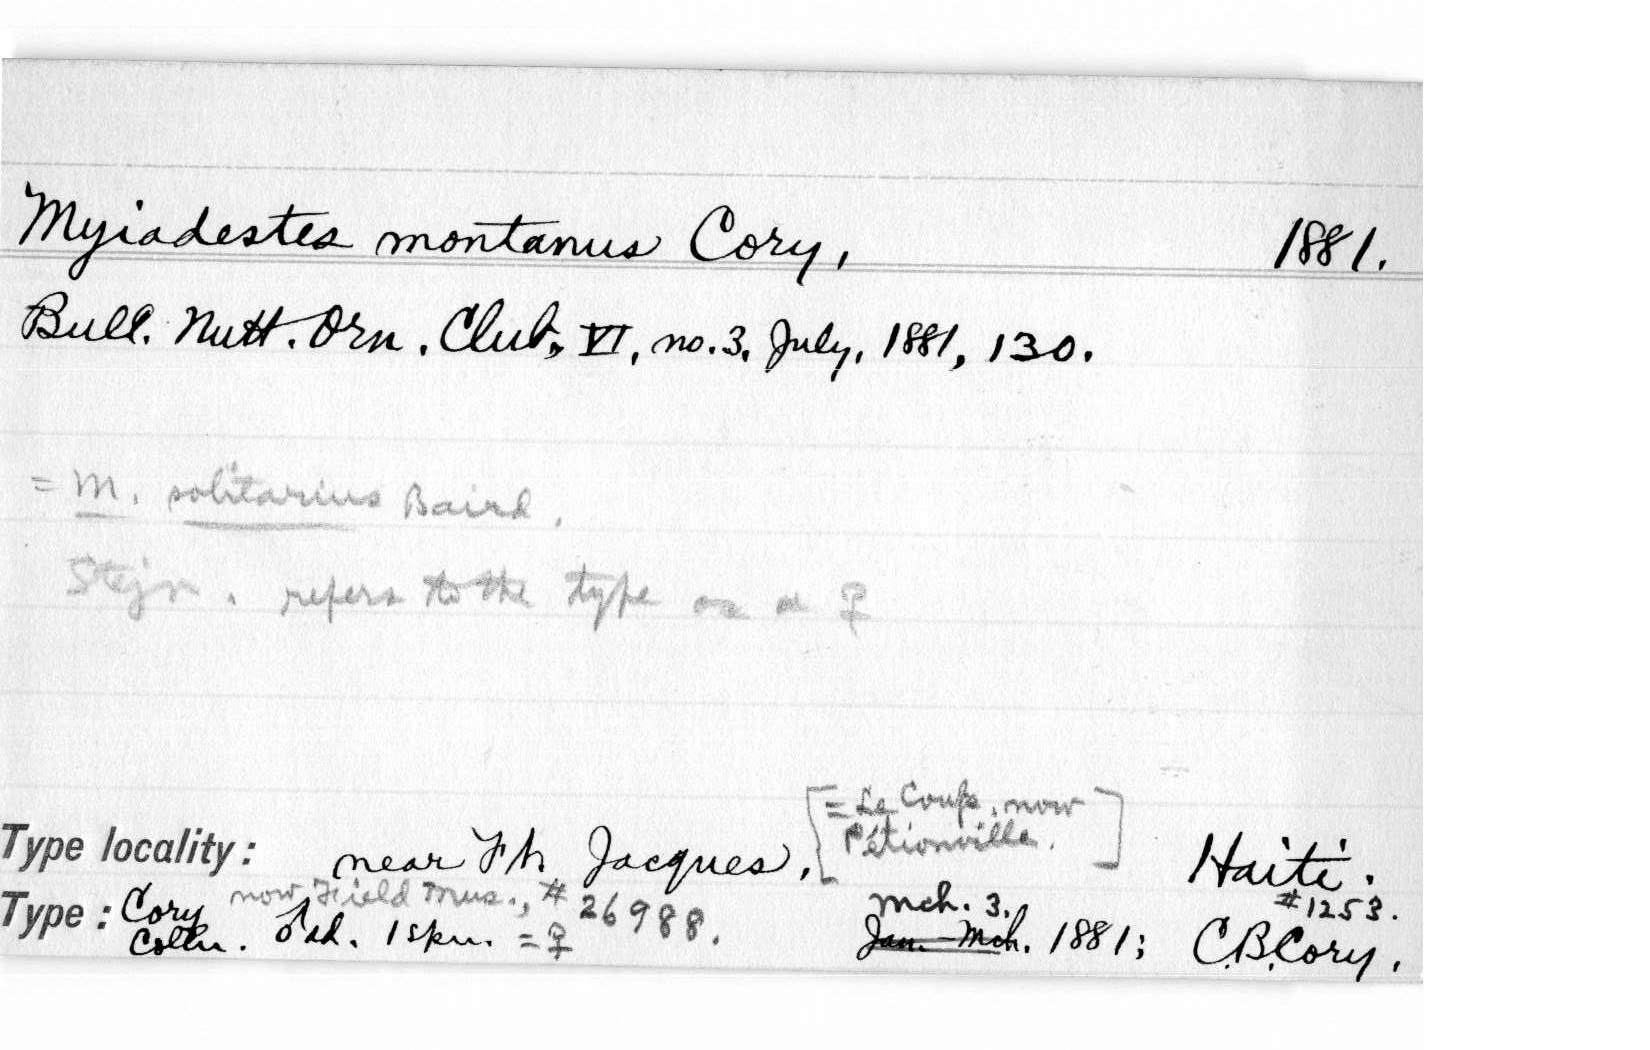 Myiadestes montanus Cory, 1881.
Bull. Nutt. Orn. Club, VI, no. 3, July, 1881, 130.
= M. solitarius Baird.
Stejn. refers to the type as a ♀
[= Le Coup, now
Pétionville.]
Type locality: near Ft. Jacques, Haiti.
now Field Mus., # 26988. Mch. 3. #1253.
Type: Cory ♂ ad. 1 spm. = ♀ Jan. - Mch. 1881; C.B. Cory.
Colln.